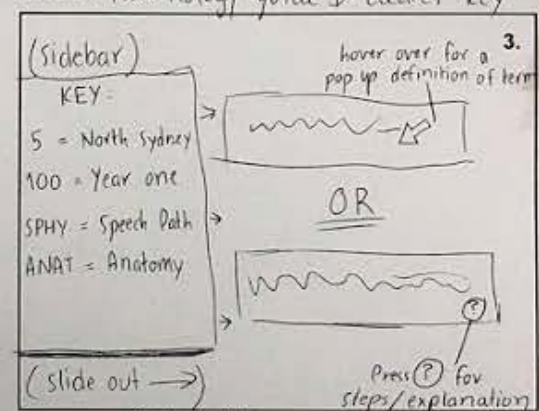 guide & clearer key
3.
(Sidebar)
KEY:
5 = North Sydney
100 = Year one
SPHY = Speech Path
ANAT = Anatomy
(slide out →)
hover over for a
pop up definition of term
OR
?
Press ? for
steps/explanation